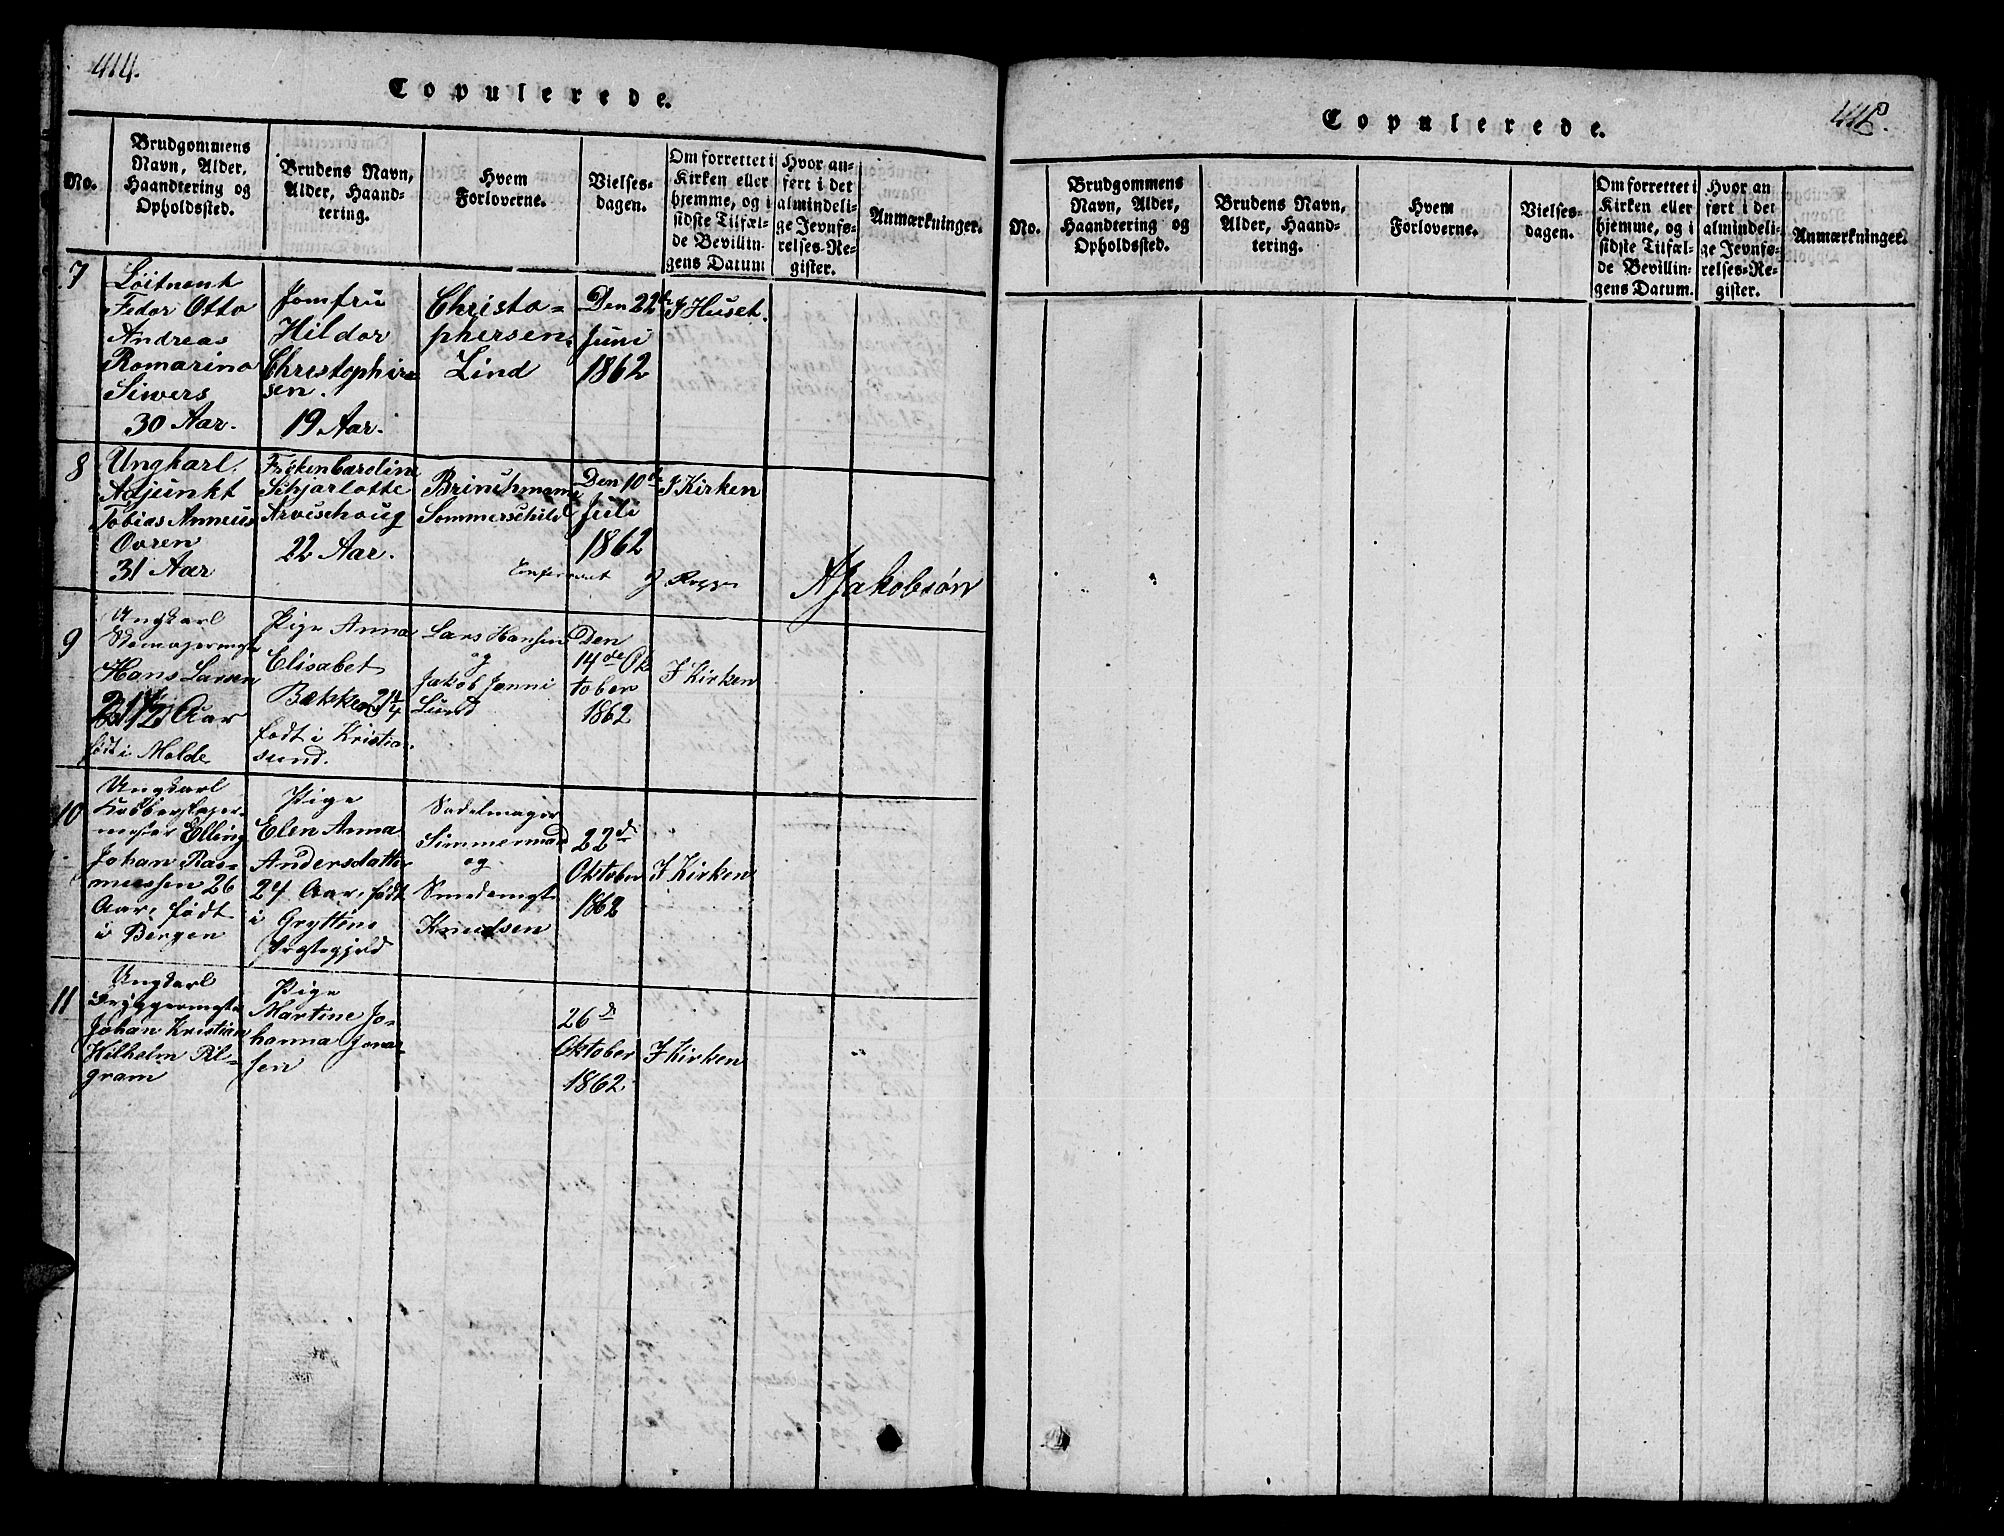 414.
Copulerede.
No.
Brudgommens
Navn, Alder,
Haandtering og
Opholdssted.
Brudens Navn,
Alder, Haand-
tering.
Hvem
Forloverne.
Vielses-
dagen.
Om forrettet i
Kirken eller
hjemme, og i
sidste Tilfæl-
de Bevillin-
gens Datum
Hvor an-
ført i det
almindeli-
ge Jevnfø-
relses-Re-
gister.
Anmærkninger.
7
Løitnent
Fedor Otto
Andreas
Romarino
Siwers
30 Aar.
Jomfru
Hildor
Christophir-
sen.
19 Aar.
Christo-
phersen.
Lind
Den 22de
Juni
1862
I Huset.
8
Ungkarl.
Adjunkt
Tobias Anneus
Ovren
31 Aar
Frøken Caroline
Schjarlotte
Arvischoug
22 Aar.
Brinchmann
Sommerschild
Den 10de
Juli
1862
I Kirken
AJakobsøn
9
Ungkarl
Hans Larsen
21½ Aar
født i Molde
Pige Anna
Elisabet
Bækken 21¼
født i Kristian
sund.
Lars Hansen
og
Jakob Janni
Lund
Den
14de Ok
tober
1862
I Kirken
10
Ungkarl
Kobberslager-
mester Elling
Johan Ras-
mussen 26
Aar, født
i Bergen
Pige
Elen Anna
Andersdatter
24 Aar, født
i Gryttine
Præstegjeld
Sadelmager
Simmermand
og
Smedemgst
Knudsen
22de
Oktober
1862
I Kirken
11
Ungkarl
Bryggermgst
Johan Kristian
Wilhelm Pil-
gram
Pige
Martine Jo-
hanna Jonas-
sen
26de
Oktober
1862.
I Kirken
Copulerede.
No.
Brudgommens
Navn, Alder,
Haandtering og
Opholdssted.
Brudens Navn,
Alder, Haand-
tering.
Hvem
Forloverne.
Vielses-
dagen.
Om forrettet i
Kirken eller
hjemme, og i
sidste Tilfæl-
de Bevillin-
gens Datum.
Hvor an
ført i det
almindeli-
ge Jevnfø-
relses-Re-
gister.
Anmærkninger.